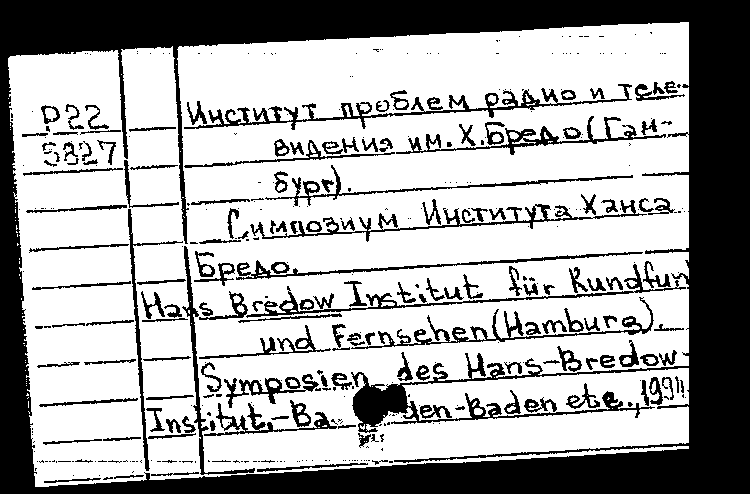 Р22
5827
Институт проблем радио и теле-
видения им. Х. Бредо (Гам-
бург).
Симпозиум Института Ханса
Бредо.
Hans Bredow Institut für Rundfun
und Fernsehen (Hamburg).
Symposien des Hans-Bredow-
Institut.-Ba den-Baden etc., 1994